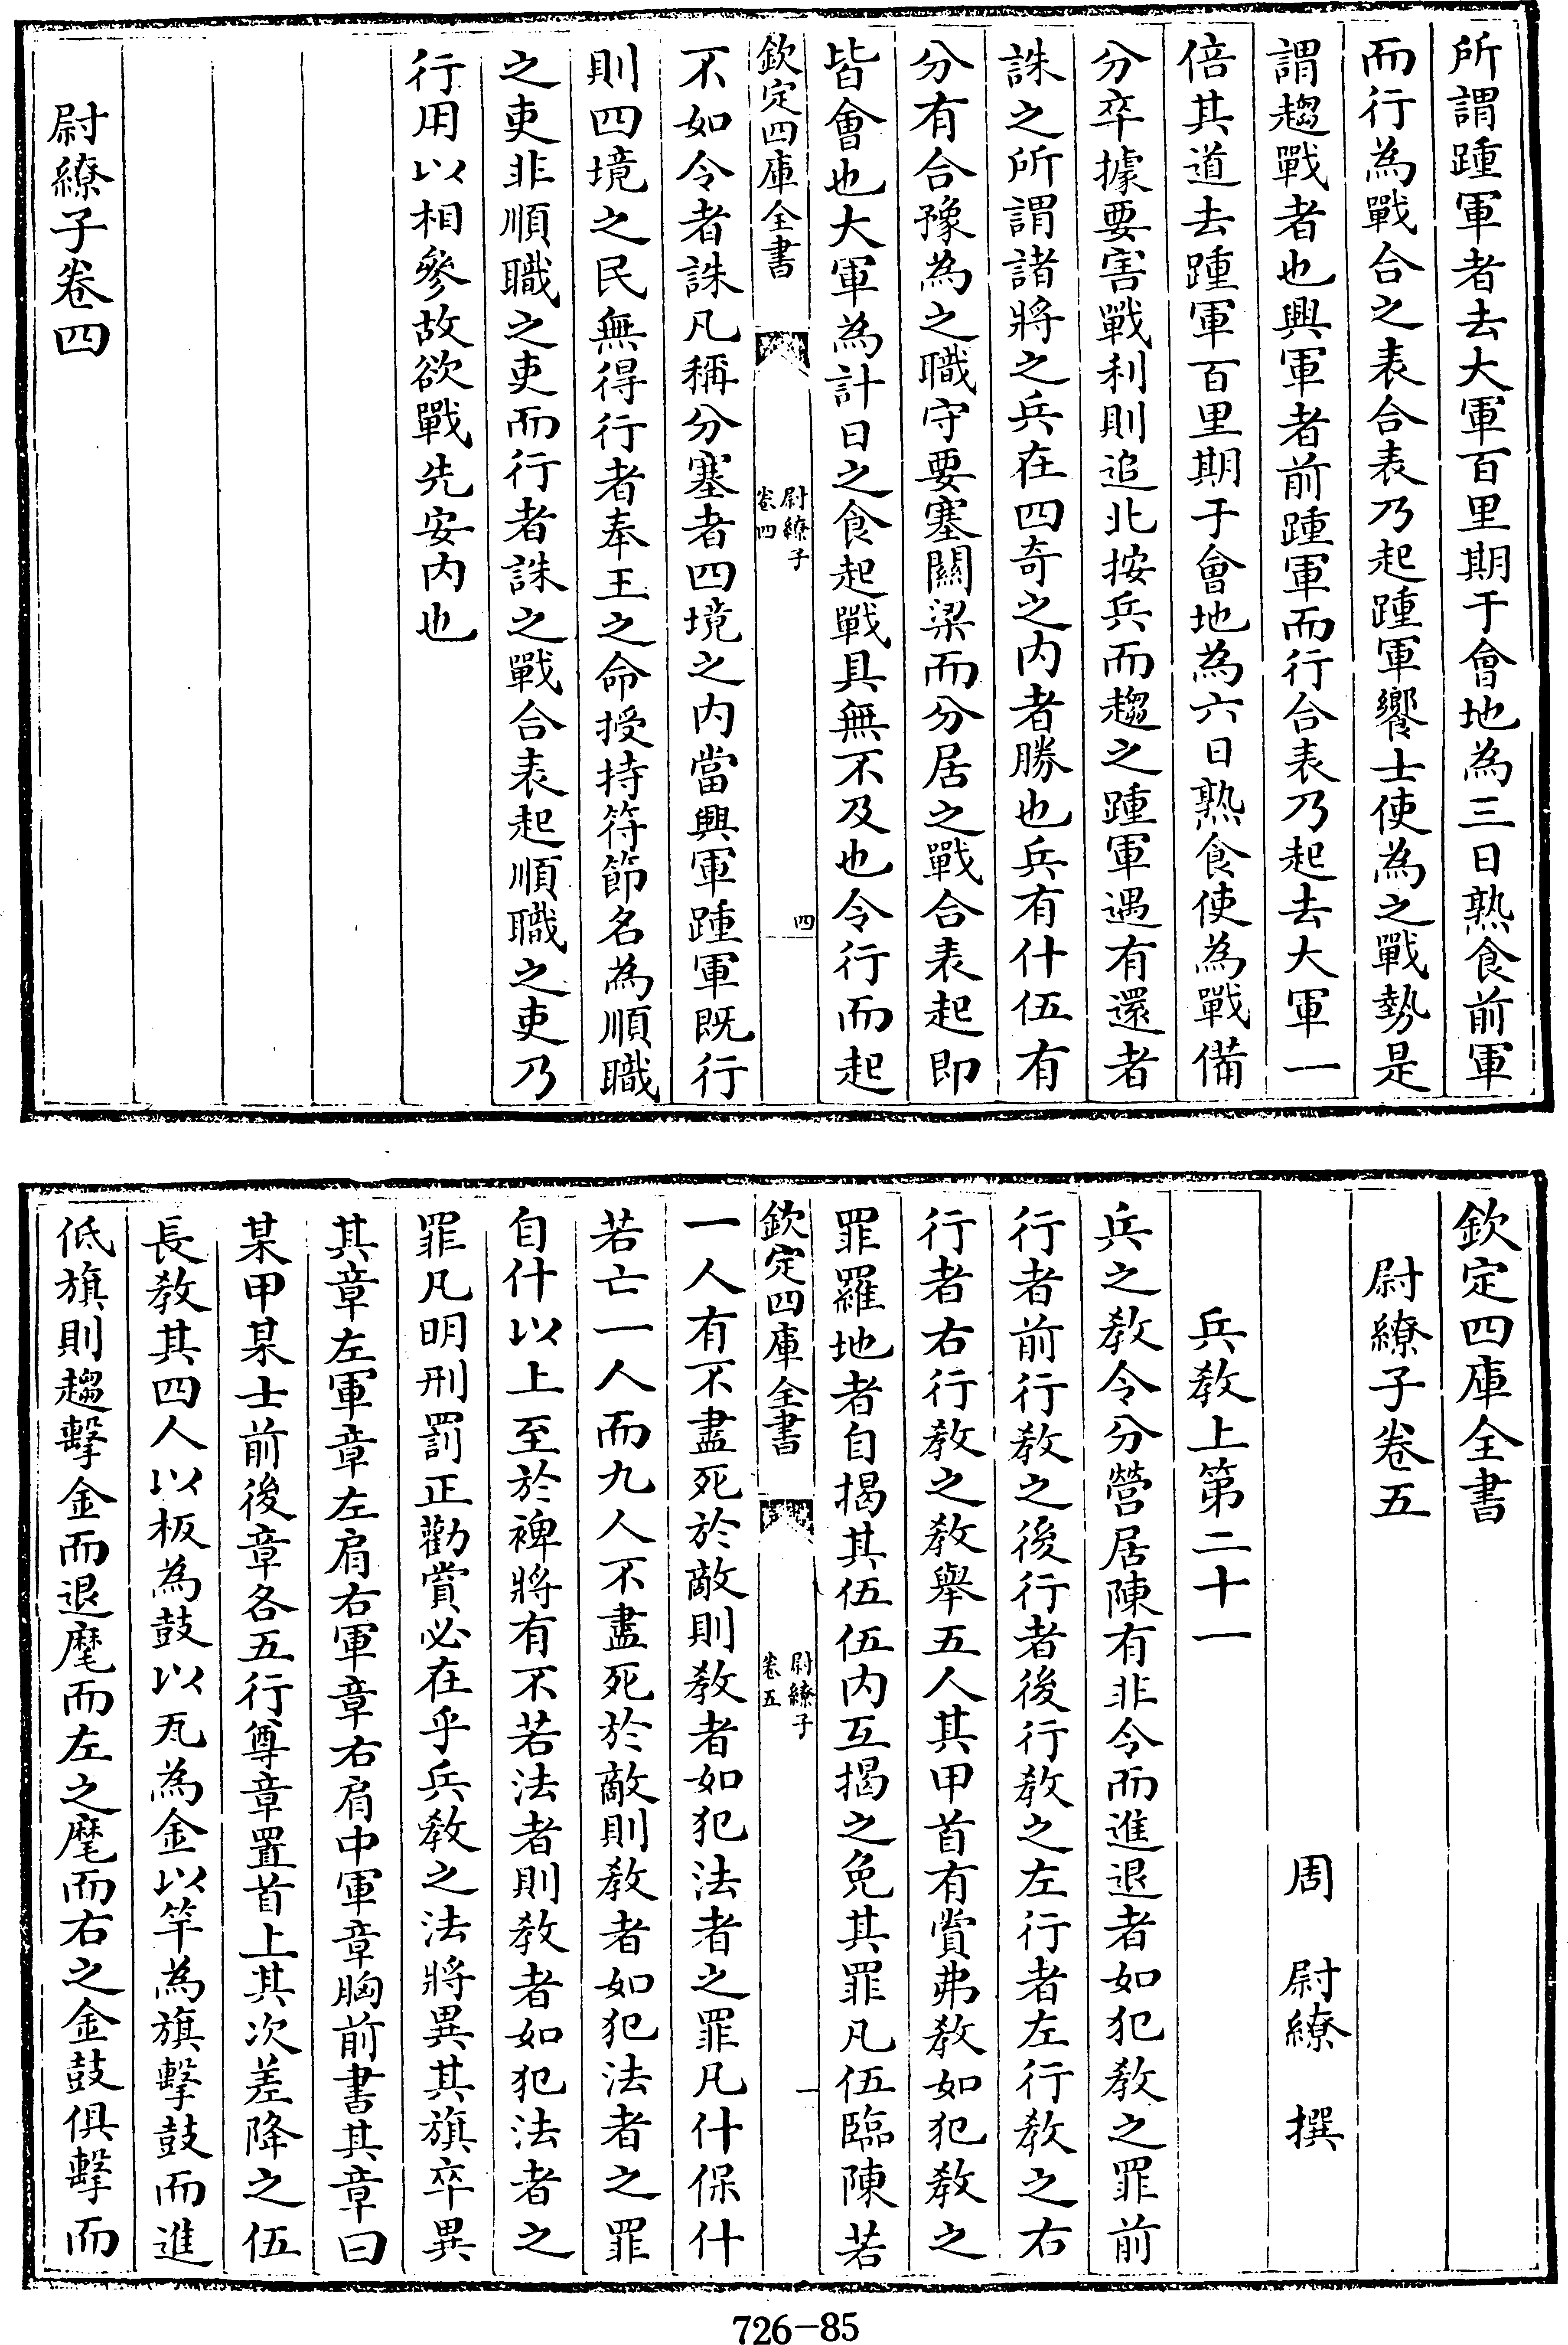 所謂踵軍者去大軍百里期于會地為三日熟食前軍
而行為戰合之表合表乃起踵軍饗士使為之戰勢是
謂趨戰者也興軍者前踵軍而行合表乃起去大軍一
倍其道去踵軍百里期于會地為六日熟食使為戰備
分卒據要害戰利則追北按兵而趨之踵軍遇有還者
誅之所謂諸將之兵在四奇之内者勝也兵有什伍有
分有合豫為之職守要塞關梁而分居之戰合表起即
皆會也大軍為計日之食起戰具無不及也令行而起
欽定四庫全書
尉繚子
卷四
四
不如令者誅凡稱分塞者四境之内當興軍踵軍既行
則四境之民無得行者奉王之命授持符節名為順職
之吏非順職之吏而行者誅之戰合表起順職之吏乃
行用以相參故欲戰先安内也
尉繚子卷四
欽定四庫全書
尉繚子卷五
周 尉繚 撰
兵教上第二十一
兵之教令分營居陳有非令而進退者如犯教之罪前
行者前行教之後行者後行教之左行者左行教之右
行者右行教之教舉五人其甲首有賞弗教如犯教之
罪羅地者自揭其伍伍内互揭之免其罪凡伍臨陳若
欽定四庫全書
尉繚子
卷五
一
一人有不盡死於敵則教者如犯法者之罪凡什保什
若亡一人而九人不盡死於敵則教者如犯法者之罪
自什以上至於裨將有不若法者則教者如犯法者之
罪凡明刑罰正勸賞必在乎兵教之法將異其旗卒異
其章左軍章左肩右軍章右肩中軍章胸前書其章曰
某甲某士前後章各五行尊章置首上其次差降之伍
長教其四人以板為鼓以瓦為金以竿為旗擊鼓而進
低旗則趨擊金而退麾而左之麾而右之金鼓俱擊而
726-85